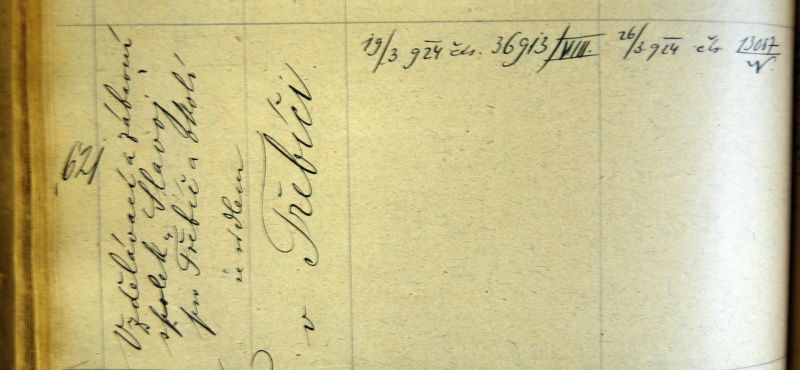 621
Vzdělávací a zábavní
spolek „Slavoj"
pro Třebíč a okolí
se sídlem
v Třebíči
19/3 924 čís. 36913/VIII.
26/3 924 čís. 13087/V.